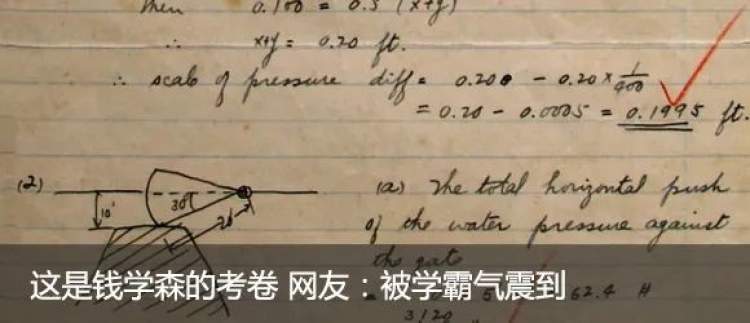 then 0.100 = 0.5 (x+y)
∴ x+y = 0.20 ft.
∴ scale of pressure diff = 0.200 - 0.20 × 1/400
= 0.20 - 0.0005 = 0.1995 ft.
(2)
10'
30°
20'
(a) The total horizontal push
of the water pressure against
the gate
62.4 #
3120
这是钱学森的考卷 网友：被学霸气震到